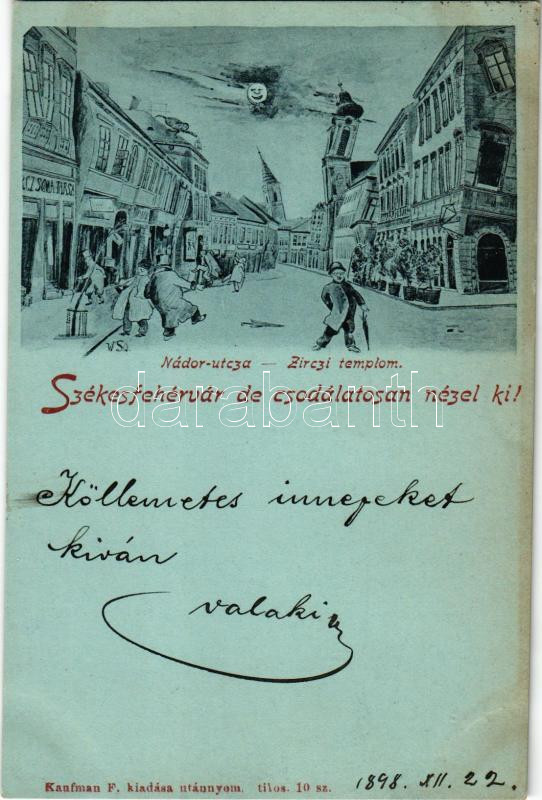 Nádor-utcza — Zirczi templom.
Székesfehérvár de csodálatosan nézel ki!
darabanth
Köllemetes innepeket
kiván
valaki
Kaufman F. kiadása utánnyom. tilos. 10 sz.
1898. XII. 22.